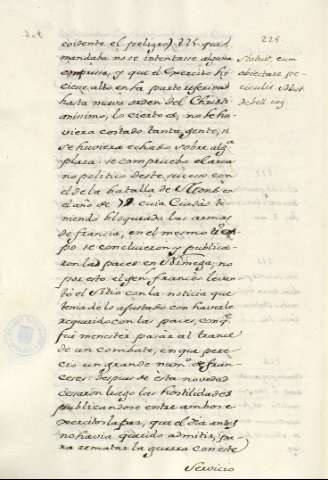 evidente el peligro) 225. que
mandaba no se intentasse alguna
empressa, y que el Exercito hi-
ciesse alto en la parte referida
hasta nueva orden del Christi-
anisimo, lo cierto es, no le hu-
viera costado tanta gente, si
se huviera echado sobre algª
plaza: se comprueba el arca-
no politico deste, sucesso con
el de la batalla de Mons en
el año de 78 cuia Ciudad te-
niendo bloqueada las armas
de francia, en el mesmo tiem-
po se concluieron y publica-
ron las paces en Nimega; no
por esto el gen. frances levan-
tó el sitio con la noticia que
tenia de lo ajustado con haverle
requerido con las paces, conq.
fué menester pasar al trance
de un combate, en que pere-
cio un grande num.º de fran-
ceses: despues de esta novedad
cesaron luego las hostilidades
publicandose entre ambos e-
xercitos la paz, que el dia antes
no havia querido admitir, pa-
ra rematar la guerra con este
servicio
225.
Statuit, cum
obiectare pe-
riculis
de bell. civ.